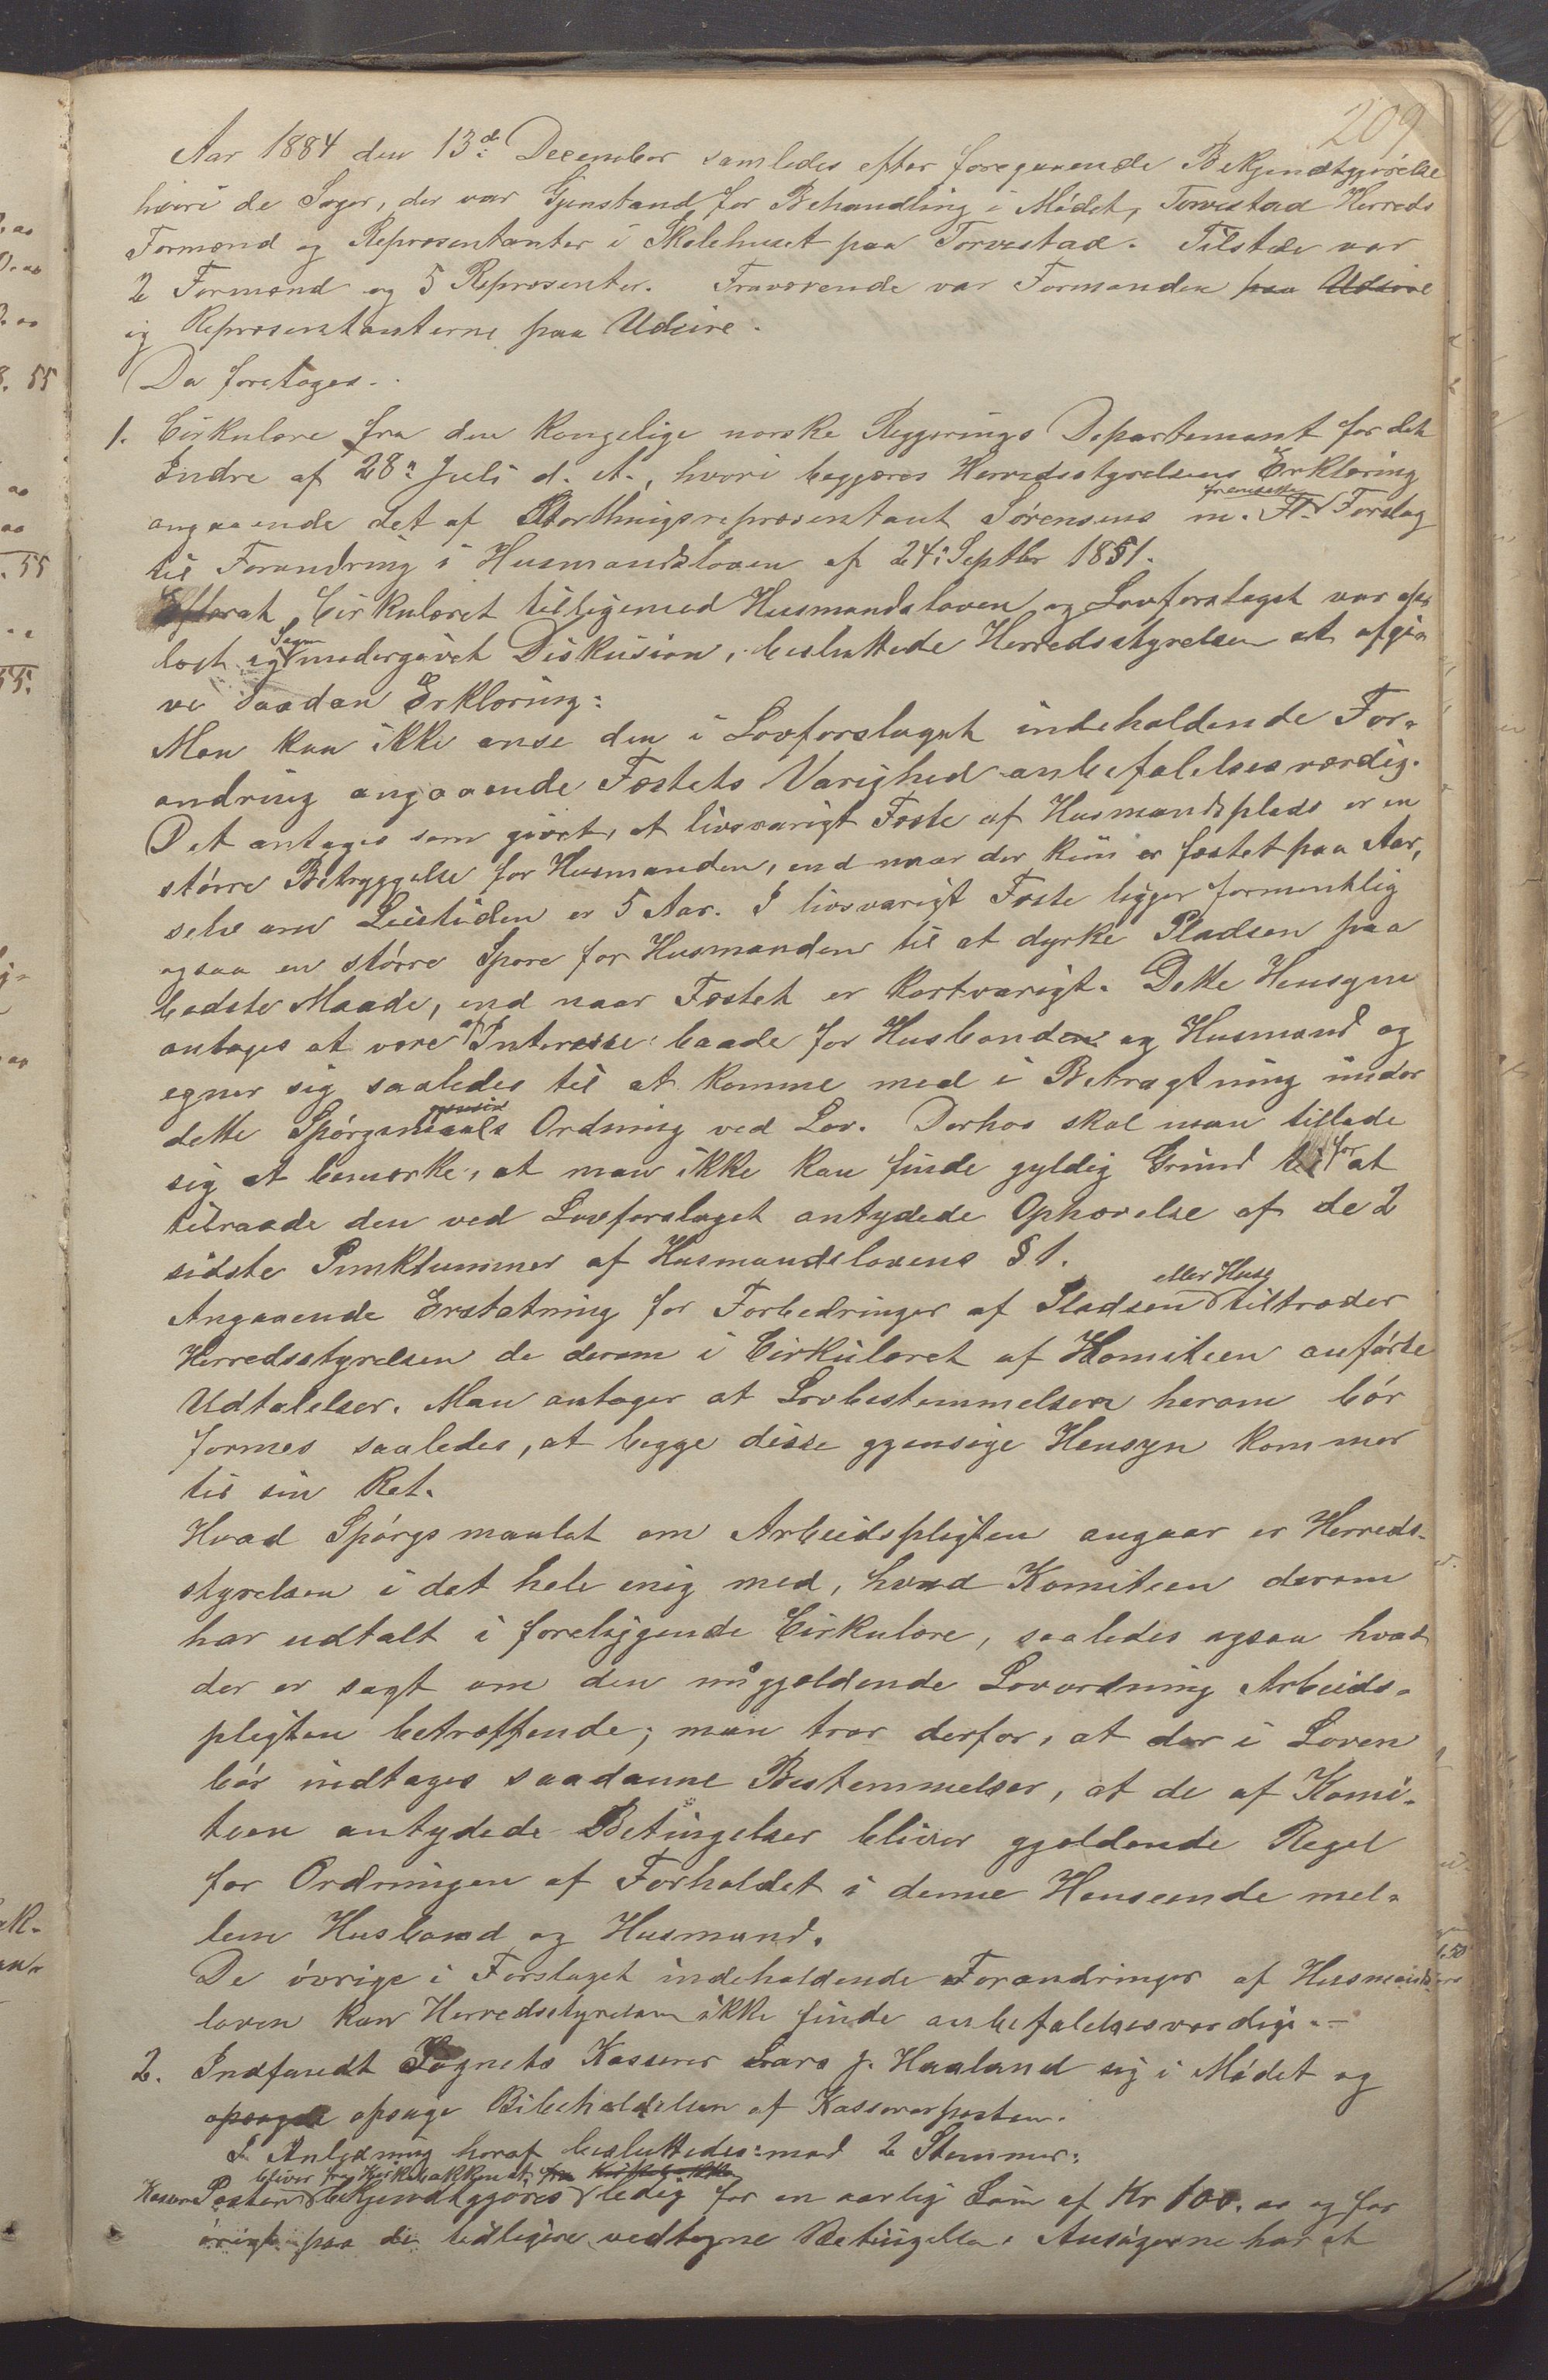 209
Aar 1884 den 13d: December samledes efter foregaaende Bekjendtgjørelse
hvori de Sager, der var Gjenstand for Behandling i Mødet, Torvestad Herreds
Formænd og Repræsentanter i Skolehuset paa Torvestad. Tilstede var
2 Formænd og 5 Repræsenter. Fraværende var Formanden paa Udsire
og Repræsentanterne paa Udsire.
Da foretoges.
1. Cirkulære fra den kongelige norske Regjerings Departement for det
Indre af 28: Juli d. A., hvori begjæres Herredsstyrelsens Erklæring
angaaende det af Storthingsrepræsentant Sørensens m. Fl. fremsatte Forslag
til Forandring i Husmandsloven af 24: Septbr 1851.
Efterat Cirkulæret tilligemed Husmandsloven og Lovforslaget var op-
læst og Sagen undergivet Diskusion, besluttede Herredsstyrelsen at afgi-
ve saadan Erklæring:
Man kan ikke anse den i Lovforslaget indeholdende For-
andring angaaende Fæstets Varighed anbefalelsesværdig.
Det antages som givet, at livsvarigt Fæste af Husmandsplads er en
større Betryggelse for Husmanden, end naar der kun er fæstet paa Aar,
selv om Leietiden er 5 Aar. I livsvarigt Fæste ligger formentlig
ogsaa en større Spore for Husmanden til at dyrke Pladsen paa
bedste Maade, end naar Fæstet er kortvarigt. Dette Hensyn
antages at være af Interesse baade for Husbonden og Husmand og
egner sig saaledes til at komme med i Betragtning under
dette Spørgsmaals Ordning ved Lov. Derhos skal man tillade
sig at bemærke, at man ikke kan finde gyldig Grund til for at
tilraade den ved Lovforslaget antydede Ophævelse af de 2
sidste Punktummer af Husmandslovens § 1.
Angaaende Erstatning for Forbedringer af Pladsen eller Huse tiltræder
Herredsstyrelsen de derom i Cirkulæret af Komiteen anførte
Udtalelser. Man antager at Lovbestemmelsen herom bør
formes saaledes, at begge disse gjensige Hensyn kommer
til sin Ret.
Hvad Spørgsmaalet om Arbeidspligten angaar er Herreds-
styrelsen i det hele enig med, hvad Komiteen derom
har udtalt i foreliggende Cirkulære, saaledes ogsaa hvad
der er sagt om den nugjældende Lovordning Arbeids-
pligten betræffende; man tror derfor, at der i Loven
bør indtages saadanne Bestemmelser, at de af Komi-
teen antydede Betingelser bliver gjældende Regel
for Ordningen af Forholdet i denne Henseende mel-
lem Husbond og Husmand.
De øvrige i Forslaget indeholdende Forandringer af Husmands-
loven kan Herredsstyrelsen ikke finde anbefalelsesværdige.-
2. Indfandt Sognets Kasserer Lars J. Haaland sig i Mødet og
opsagde opsage Bibeholdelsen af Kassererposten.
I Anledning heraf besluttedes med 2 Stemmer:
Kasserer Posten bliver fra Kirkebakken at bekjendtgjøres ledig for en aarlig Løn af Kr 100.00 og for
øvrigt paa de tidligere vedtagne Betingelser. Ansøgerne har at